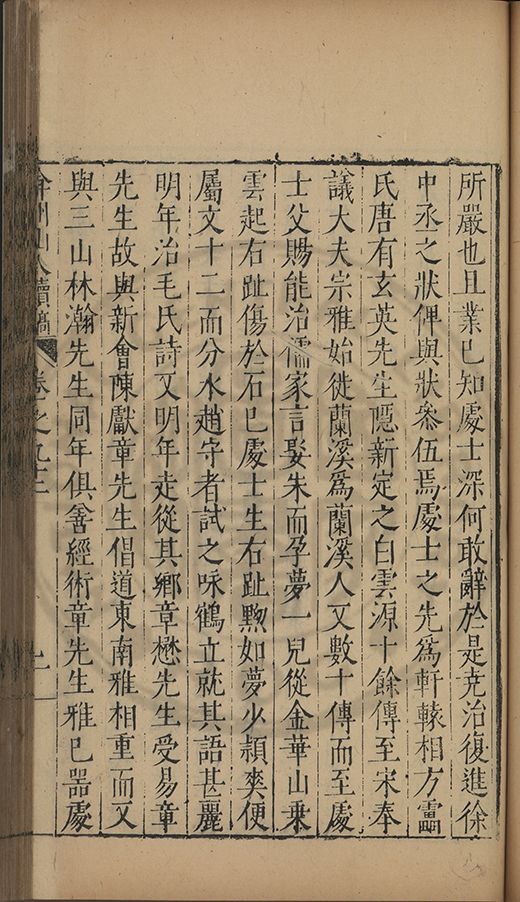 所嚴也且業已知處士深何敢辭於是堯治復進徐
中丞之狀俾與狀叅伍焉處士之先爲軒轅相方靁
氏唐有玄英先生隱新定之白雲源十餘傳至宋奉
議大夫宗雅始徙蘭溪爲蘭溪人又數十傳而至處
士父賜能治儒家言娶朱而孕夢一兒從金華山乗
雲起右趾傷於石已處士生右趾黝如夢少頴爽便
屬文十二而分水趙守者試之咏鶴立就其語甚麗
明年治毛氏詩又明年走從其鄉章懋先生受易章
先生故與新會陳獻章先生倡道東南雅相重而又
與三山林瀚先生同年俱善經術章先生雅已器處
弇州山人續稿 卷之九三